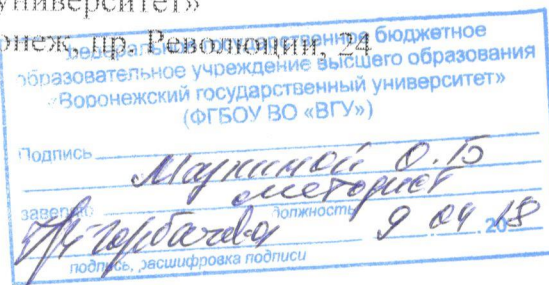 университет»
пр. Революции, 24
Федеральное государственное бюджетное
образовательное учреждение высшего образования
«Воронежский государственный университет»
(ФГБОУ ВО «ВГУ»)
Подпись О.Б
методист
должность
Горбачева 9 04 2018
подпись, расшифровка подписи